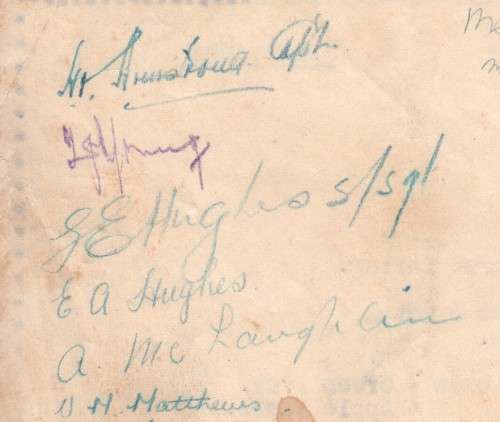 Armstrong
Young
G E Hughes S/Sgt
E A Hughes.
A Mc Laughlin
H Matthews.